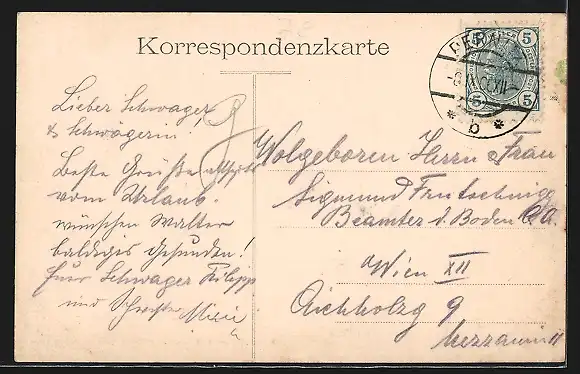 Korrespondenzkarte
5 5
5 5
b
Lieber Schwager
& Schwägerin!
Beste Grüße
vom Urlaub.
wünschen Walter
baldiges Gesunden!
Euer Schwager Filipp
und Schwester Mizzi
Wolgeboren Herrn & Frau
Sigmund
Beamter d. Boden C. A.
Wien XII
Aichholzg 9
Mezzanin 11